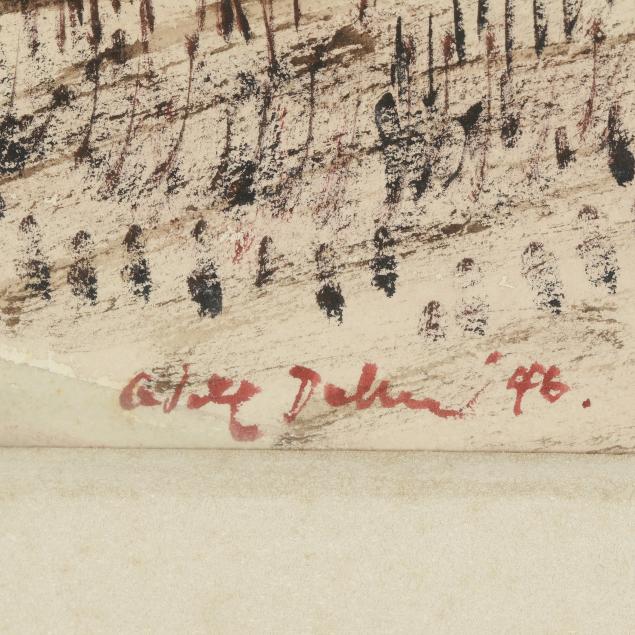 Adolf Dehn '46.